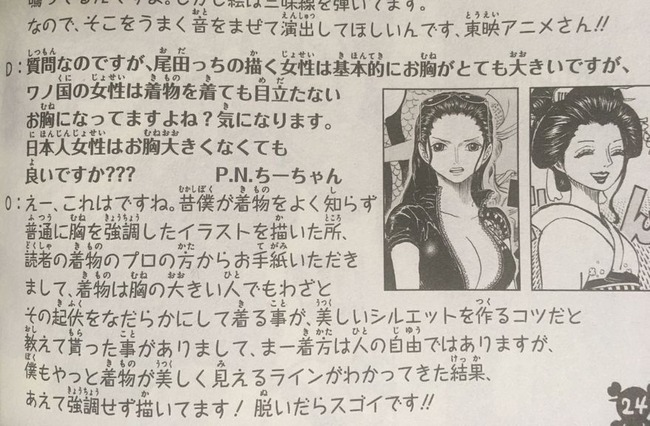 鳴ってるんですよ。しかし絵は三味線を弾いてます。
なので、そこをうまく音をまぜて演出してほしいんです、東映アニメさん!!
D:質問なのですが、尾田っちの描く女性は基本的にお胸がとても大きいですが、
ワノ国の女性は着物を着ても目立たない
お胸になってますよね?気になります。
日本人女性はお胸大きくなくても
良いですか??? P.N.ちーちゃん
O:えー、これはですね。昔僕が着物をよく知らず
普通に胸を強調したイラストを描いた所、
読者の着物のプロの方からお手紙いただき
まして、着物は胸の大きい人でもわざと
その起伏をなだらかにして着る事が、美しいシルエットを作るコツだと
教えて貰った事がありまして、まー着方は人の自由ではありますが、
僕もやっと着物が美しく見えるラインがわかってきた結果、
あえて強調せず描いてます!脱いだらスゴイです!!
24